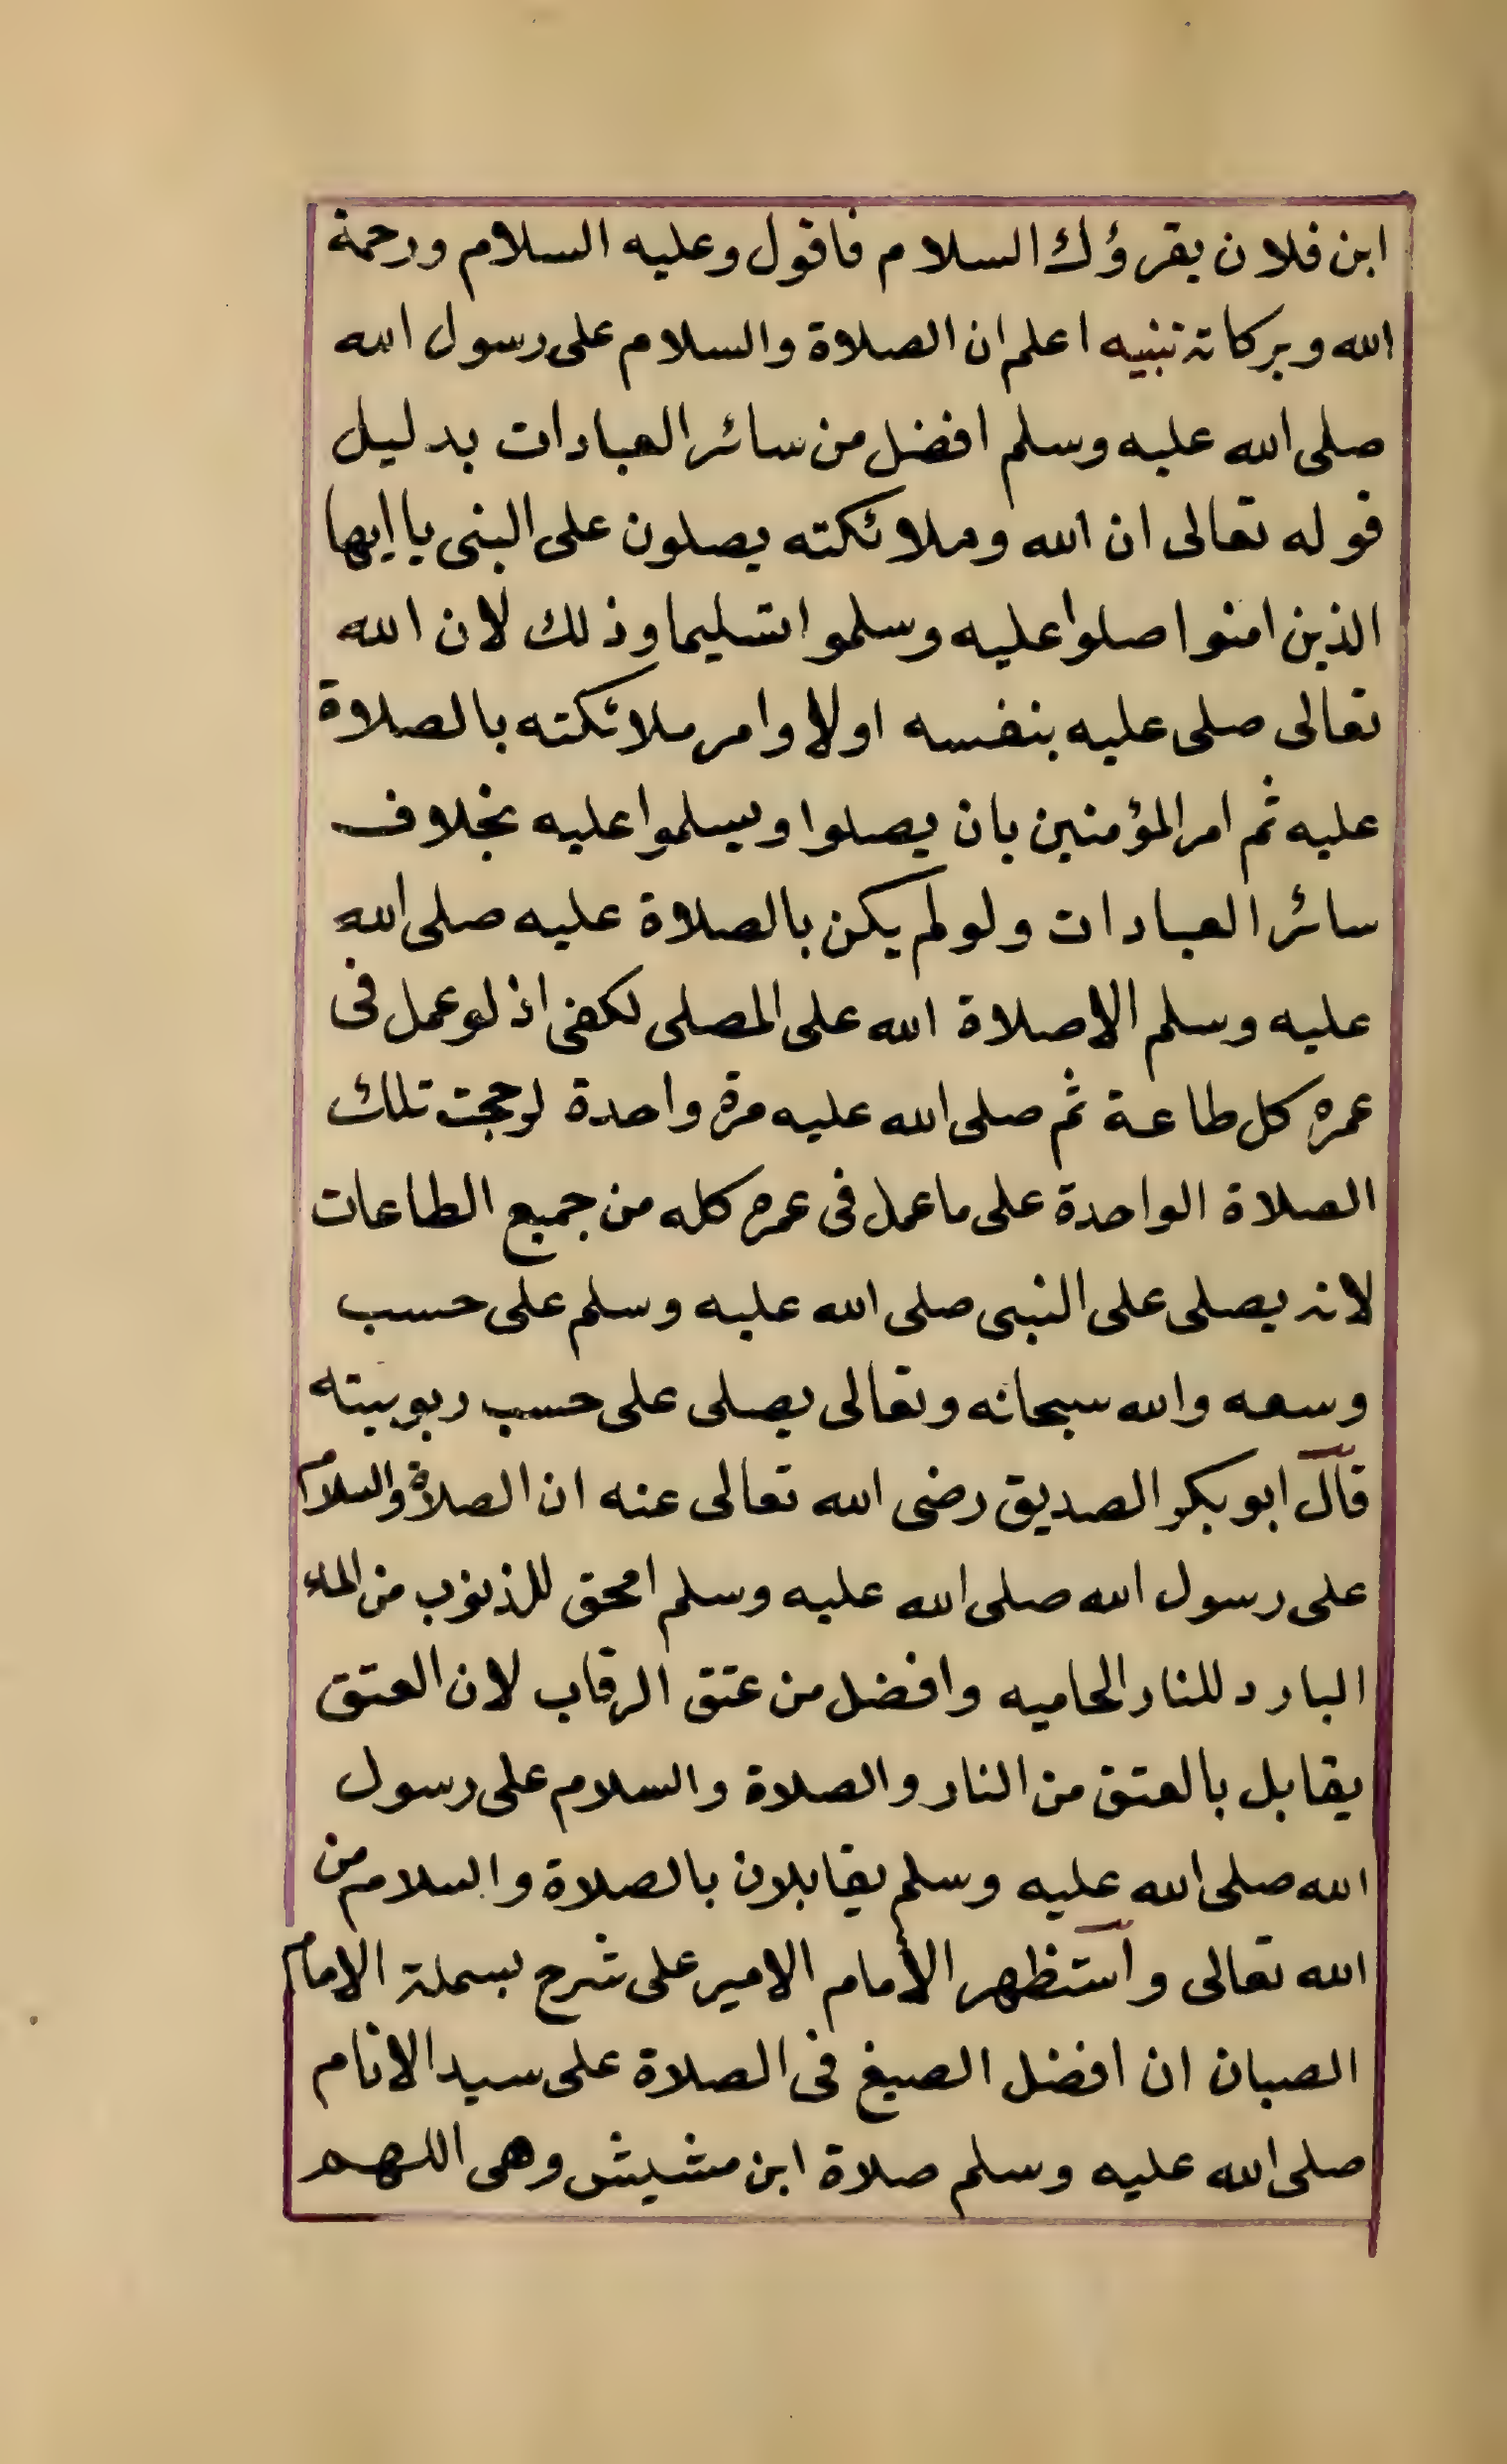 ابن فلان يقرؤك السلام فاقول وعليه السلام ورحمة
الله وبركاته تنبيه اعلم ان الصلاة والسلام على رسول الله
صلى الله عليه وسلم افضل من سائر العبادات بدليل
قوله تعالى ان الله وملائكته يصلون على النبى يا ايها
الذين امنوا صلوا عليه وسلموا تسليما وذلك لان الله
تعالى صلى عليه بنفسه اولا وامر ملائكته بالصلاة
عليه ثم امر المؤمنين بان يصلوا ويسلموا عليه بخلاف
سائر العبادات ولو لم يكن بالصلاة عليه صلى الله
عليه وسلم الا صلاة الله على المصلى لكفى اذ لو عمل فى
عمره كل طاعة ثم صلى الله عليه مرة واحدة لرجحت تلك
الصلاة الواحدة على ما عمل فى عمره كله من جميع الطاعات
لانه يصلى على النبى صلى الله عليه وسلم على حسب
وسعه والله سبحانه وتعالى يصلى على حسب ربوبيته
قال ابو بكر الصديق رضى الله تعالى عنه ان الصلاة والسلام
على رسول الله صلى الله عليه وسلم امحق للذنوب من الماء
البارد للنار الحاميه وافضل من عتق الرقاب لان العتق
يقابل بالعتق من النار والصلاة والسلام على رسول
الله صلى الله عليه وسلم يقابلان بالصلاة والسلام من
الله تعالى واستظهر الأمام الامير على شرح بسملة الامام
الصبان ان افضل الصيغ فى الصلاة على سيد الانام
صلى الله عليه وسلم صلاة ابن مشيش وهى اللهم